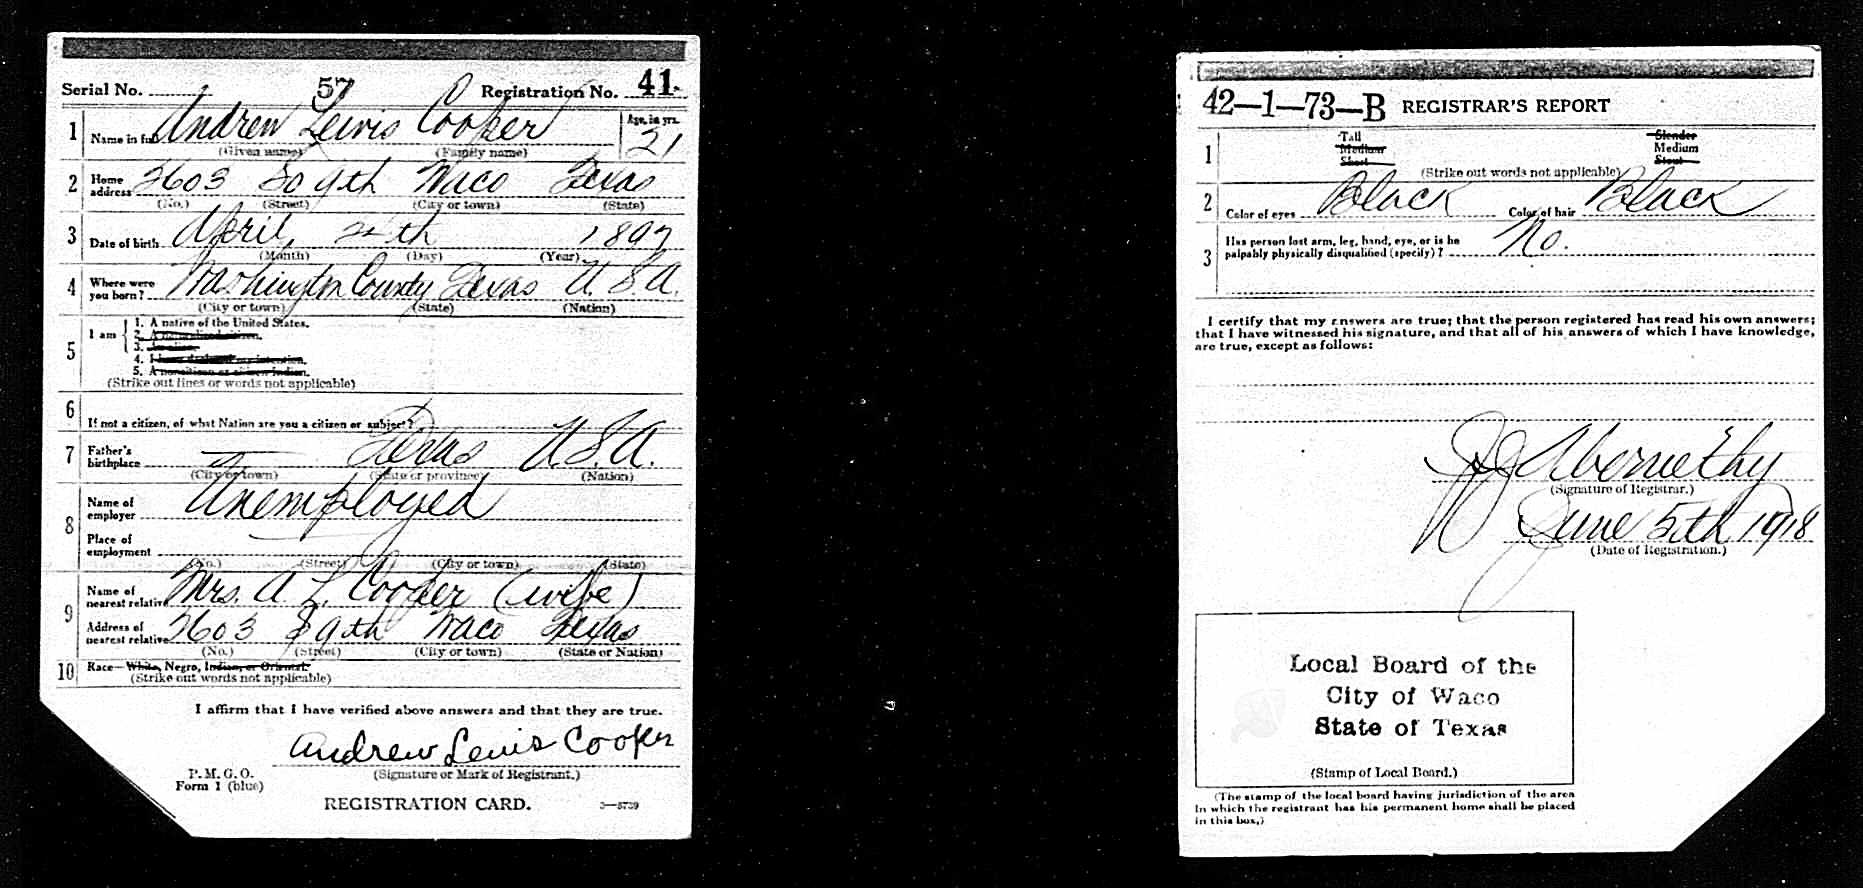 Serial No. 57 Registration No. 41.
1 Name in full Andrew Lewis Cooper Age, in yrs. 21
(Given name) (Family name)
2 Home address 3603 So 9th Waco Texas
(No.) (Street) (City or town) (State)
3 Date of birth April, th 1897
(Month) (Day) (Year)
4 Where were you born? Washington County Texas U.S.A.
(City or town) (State) (Nation)
5 I am
1. A native of the United States.
2. A naturalized citizen.
3. An alien.
4. I have declared my intention.
5. A noncitizen or citizen Indian.
(Strike out lines or words not applicable)
6 If not a citizen, of what Nation are you a citizen or subject?
7 Father's birthplace Texas U.S.A.
(City or town) (State or province) (Nation)
8 Name of employer Unemployed
Place of employment
(No.) (Street) (City or town) (State)
9 Name of nearest relative Mrs. A L. Cooper (wife)
Address of nearest relative 3603 S 9th Waco Texas
(No.) (Street) (City or town) (State or Nation)
10 Race—White, Negro, Indian, or Oriental.
(Strike out words not applicable)
I affirm that I have verified above answers and that they are true.
Andrew Lewis Cooper
(Signature or Mark of Registrant.)
P. M. G. O.
Form 1 (blue)
REGISTRATION CARD.
3—5739
42—1—73—B REGISTRAR'S REPORT
1 Tall Slender
Medium Medium
Short Stout
(Strike out words not applicable)
2 Color of eyes Black Color of hair Black
3 Has person lost arm, leg, hand, eye, or is he
palpably physically disqualified (specify)? No.
I certify that my answers are true; that the person registered has read his own answers;
that I have witnessed his signature, and that all of his answers of which I have knowledge,
are true, except as follows:
Abernethy
(Signature of Registrar.)
June 5th 1918
(Date of Registration.)
Local Board of the
City of Waco
State of Texas
(Stamp of Local Board.)
(The stamp of the local board having jurisdiction of the area
in which the registrant has his permanent home shall be placed
in this box.)